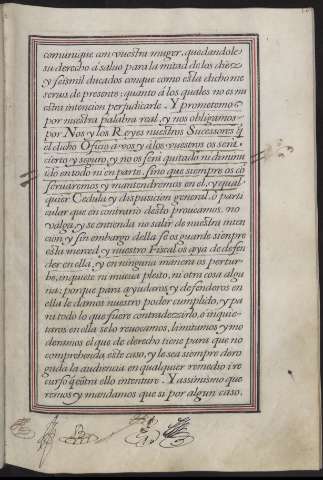 comunique con vuestra muger, quedandole
su derecho a saluo para la mitad de los diez
y seis mil ducados conque como esta dicho me
seruis de presente; quanto à los quales no es nu
estra intencion perjudicarle. Y prometemos
por nuestra palabra real, y nos obligamos
por Nos y los Reyes nuestros Sucessores q̃
el dicho Officio à vos y à los vuestros os será
cierto y seguro, y no os será quitado ni diminu
ido en todo ni en parte, sino que siempre os cõ
seruaremos y mantendremos en el, y equal
quier Cedula y dispusicion general, ò parti
cular que en contrario desto proueamos, no
valga, y se entienda no salir de nuestra inten
cion, y sin embargo della se os guarde siempre
esta merced, y nuestro Fiscal os aya de defen
der en ella, y en ninguna manera os pertur
be, inquiete ni mueua pleito, ni otra cosa algu
na; porque para ayudaros y defenderos en
ella le damos nuestro poder cumplido, y pa
ra todo lo que fuere contradezirlo, ò inquie
taros en ella se lo reuocamos, limitamos y mo
deramos el que de derecho tiene para que no
comprehenda este caso, y le sea siempre dene
gada la audiencia en qualquier remedio ò re
curso q̃ cerca ello intentare. Y assimismo que
remos y mandamos que si por algun caso,